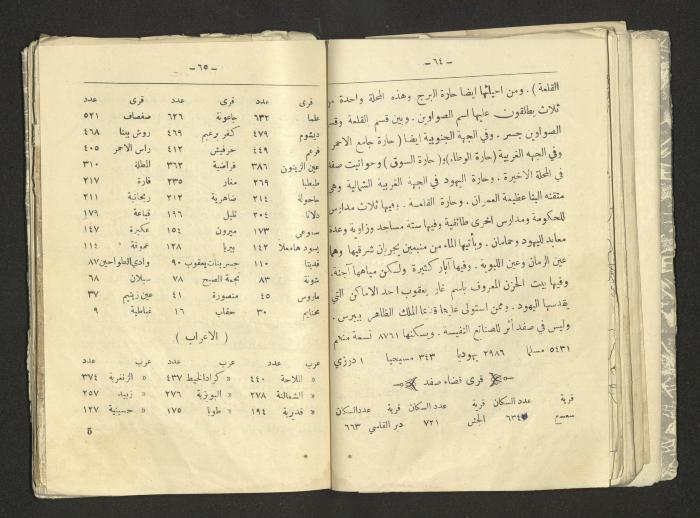 — ٦٤ —
القلعة) . ومن احيائها ايضا حارة البرج وهذه المحلة واحدة من
ثلاث يطلقون عليها اسم الصواوين . وبين قسم القلعة وقسم
الصواوين جسر . وفي الجهة الجنوبية ايضا (حارة جامع الاحمر
وفي الجهه الغربية (حارة الوطاء) و(حارة السوق) وحوانيت صفد
في المحلة الاخيرة . وحارة اليهود في الجهة الغربية الشمالية وهي
متقنه البنا عظيمة العمران . وحارة القلعة . وفيها ثلاث مدارس
للحكومة ومدارس اخرى طائفية وفيها ستة مساجد وزاوية وعدة
معابد لليهود وحمامان . ويأتيها الماء من منبعين يجريان شرقيها وهما
عين الرمان وعين اللبونة . وفيها آبار كثيرة ولكن مياهها آجنة .
وفيها بيت الحزن المعروف باسم غار يعقوب احد الاماكن التي
يقدسها اليهود . وممن استولى عليها قدعا الملك الظاهر بيبرس .
وليس في صفد أثر للصنائع النفيسة . ويسكنها ٨٧٦١ نسمة منهم
٥٤٣١ مسلما ٢٩٨٦ يهوديا ٣٤٣ مسيحيا ١ درزي
قرى قضاء صفد
قرية عدد السكان قرية عدد السكان قرية عدد السكان
سعسع ٦٣٤ الجش ٧٢١ دير القاسي ٦٦٣
— ٦٥ —
قرى عدد قرى عدد قرى عدد
علما ٦٣٢ جاعونة ٦٢٦ صفصاف ٥٢١
ديشوم ٤٧٩ كفر برعيم ٤٦٩ روش بينا ٤٦٨
فرعم ٤٤٩ حرفيش ٤١٢ راس الاحمر ٤٠٥
عين الزيتون ٣٨٦ فراضية ٣٦٢ المطلة ٣١٠
طيطبا ٢٦٩ مغار ٢٣٥ قارة ٢١٧
ماجولة ٢١٤ ضاهرية ٢١٢ ريحانية ٢١١
دلاتا ٢٠٤ تليل ١٩٦ قباعة ١٧٩
سموعي ١٧٣ ميرون ١٥٤ عكبرة ١٤٧
يسود هامعلا ١٤٢ بيريا ١٢٨ عموقة ١١٤
قديتا ١١٠ جسر بنات يعقوب ٩٠ وادي الطواحين ٨٧
شونة ٨٣ نجمة الصبح ٧٨ سبلان ٦٨
ماروس ٤٥ منصورة ٤١ عين زيتيم ٣٧
محنايم ٣٠ حقاب ١٦ غباطية ٩
( الاعراب )
عرب عدد عرب عدد عرب عدد
« الملاحة ٤٤٠ « كراد الخيط ٤٣٧ « الزنغرية ٣٧٤
« الشمالنة ٢٧٨ « البويزية ٢٧٦ « زبيد ٢٥٧
« قديرية ١٩٤ « طوبا ١٧٥ « حسينية ١٢٧
5